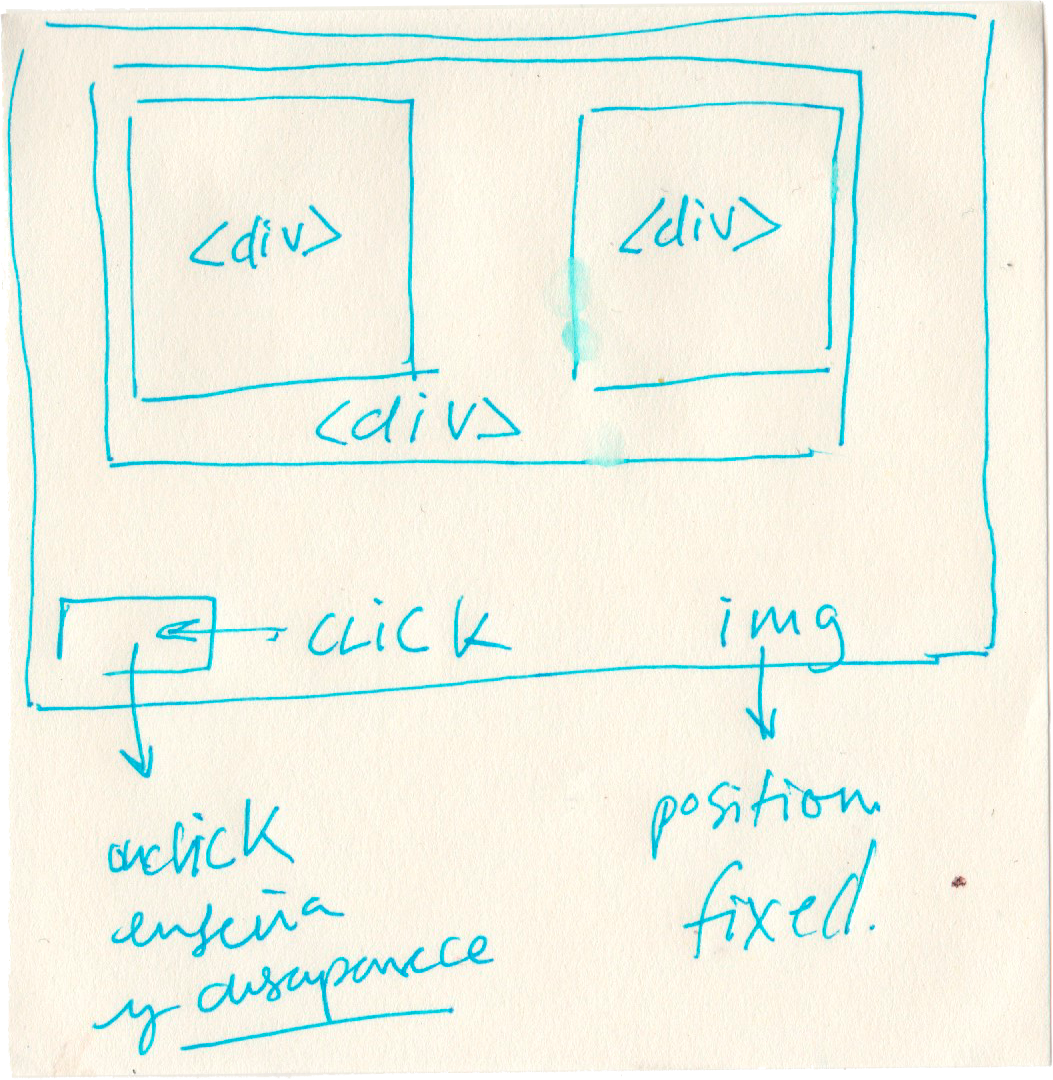 <div> <div>
<div>
CLiCK img
onclick
enseña
y desaparece
position.
fixed.